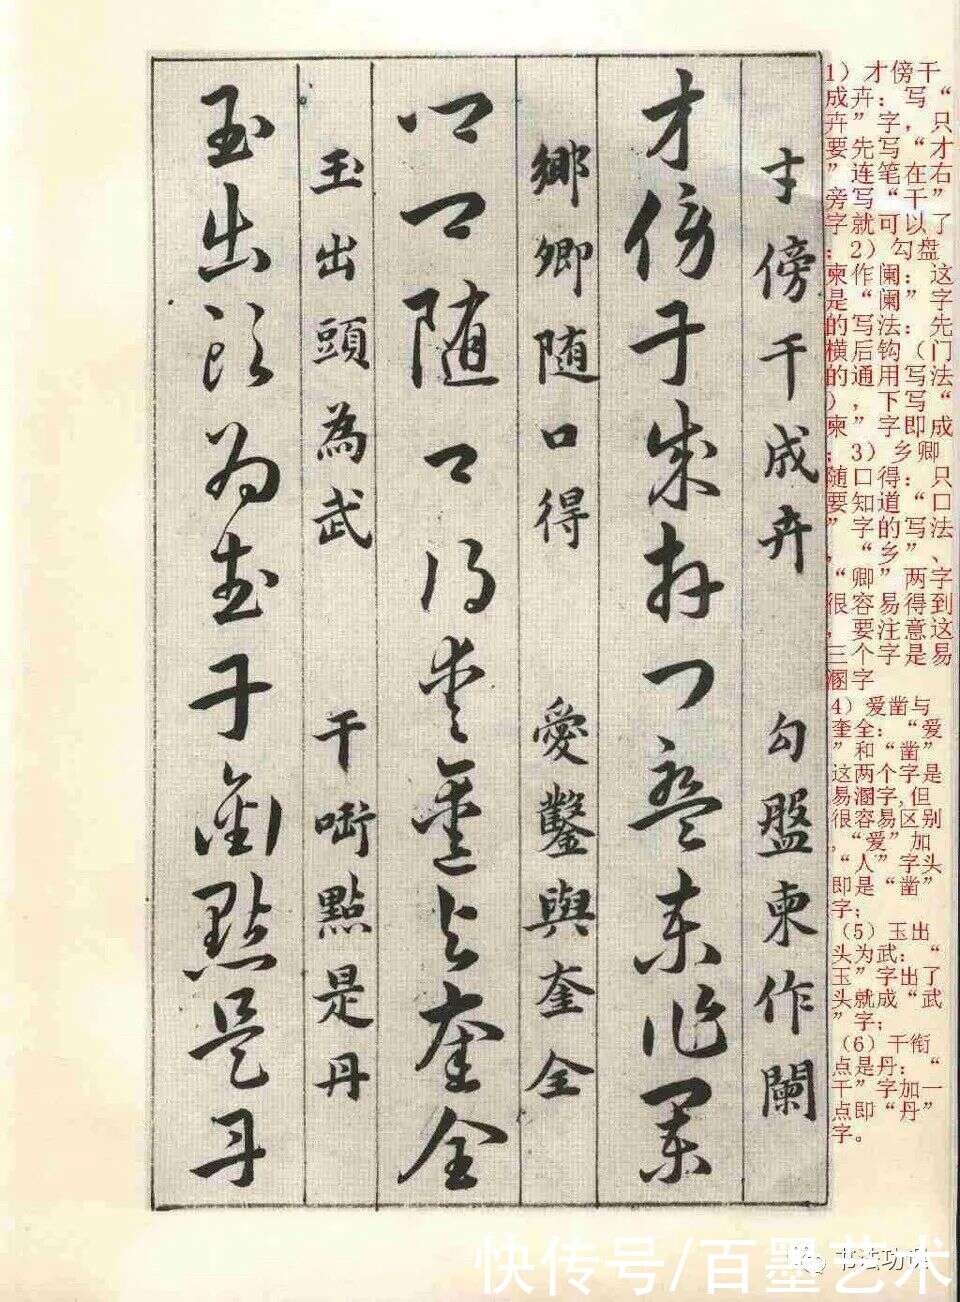 1）才傍干
成卉：写“
卉”字，只
要先写“才
”连笔在右
旁写“干”
字就可以了
；2）勾盘
柬作阑：这
是“阑”字
的写法：先
横后钩（门
的通用写法
），下写“
柬”字即成
；3）乡卿
随口得：只
要知道“口
”字的写法
，“乡”、
“卿”两字
很容易得到
，要注意这
三个字是易
溷字
4）爱凿与
奎全：“爱
”和“凿”
这两个字是
易溷字,但
很容易区别
,“爱”加
“人”字头
即是“凿”
字；
（5）玉出
头为武：“
玉”字出了
头就成“武
”字；
（6）干衔
点是丹：“
干”字加一
点即“丹”
字。
才傍干成卉 勾盤柬作闌
才傍干成卉 勾盤柬作闌
鄉卿随口得 愛鑿與奎全
鄉卿随口得 愛鑿與奎全
玉出頭為武 干啣點是丹
玉出頭為武 干啣點是丹
书法功课
快传号/百墨艺术